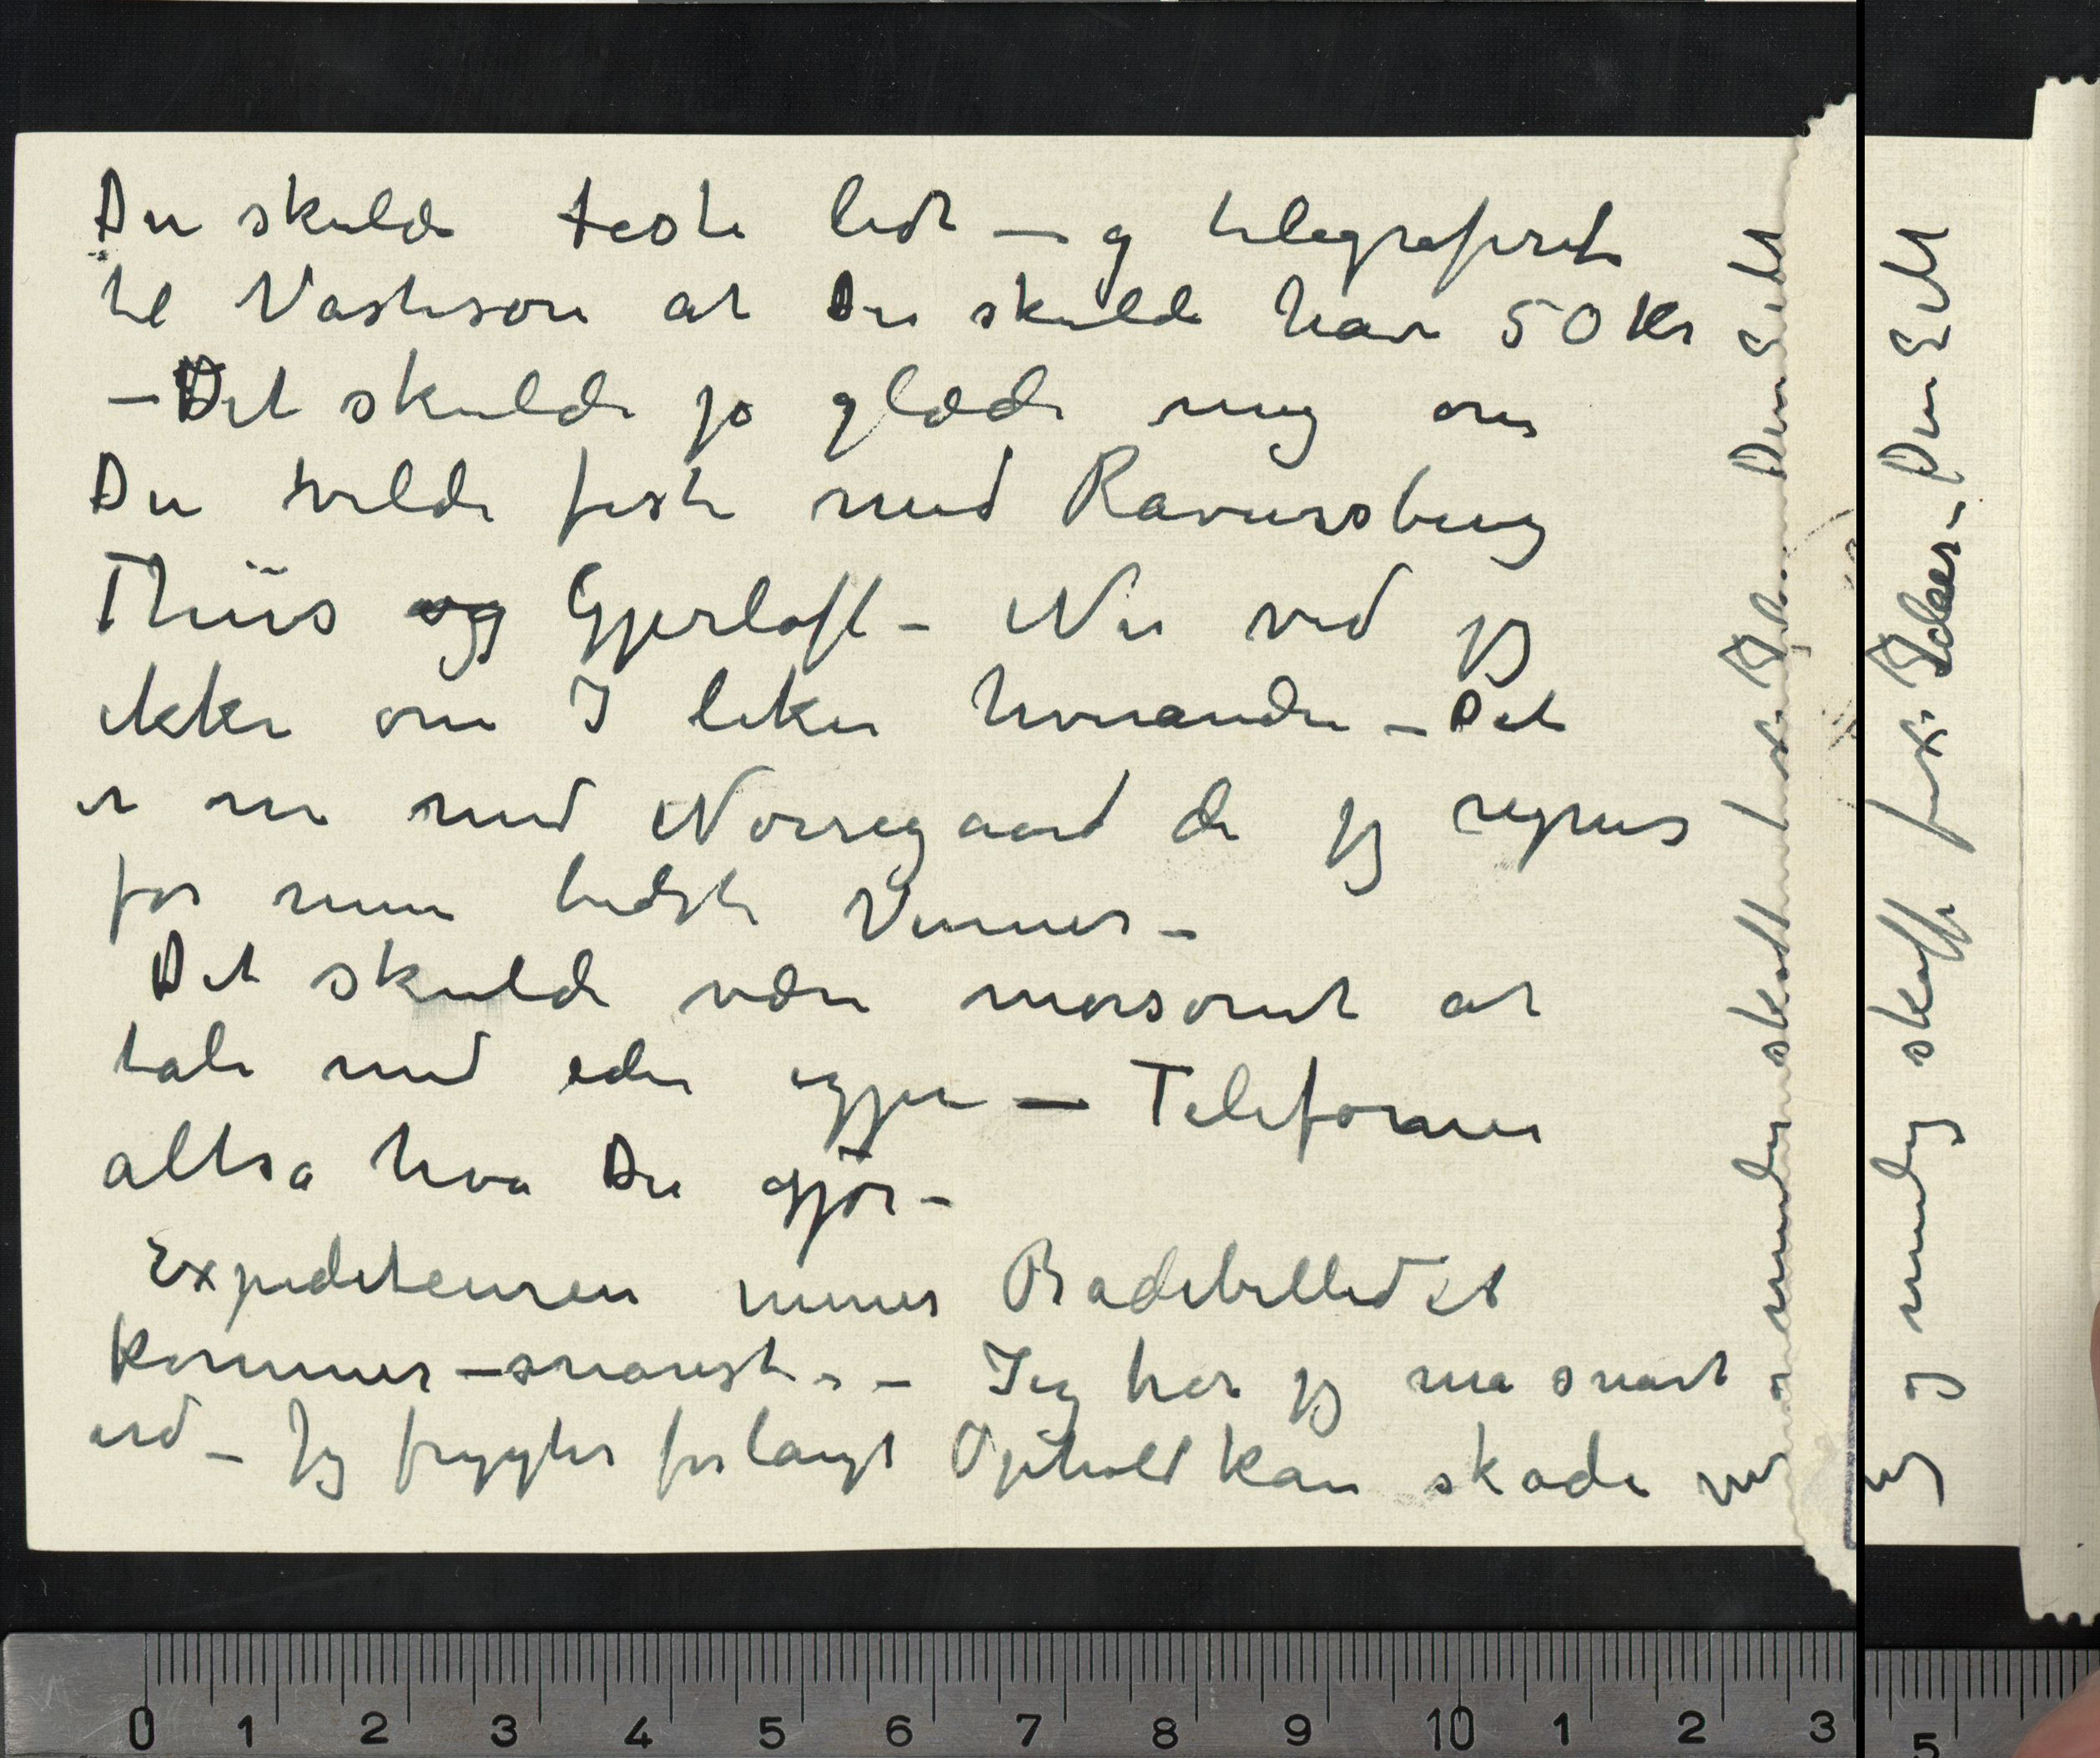 Du skulde feste lidt – og telegraferte
til Vasteson at Du skulde have 50 Kr
– Det skulde jo glæde mig om
Du vilde feste med Ravensberg
Thiis og Gjerløff – Nu ved jeg
ikke om I liker hverandre – Det
er nu med Nørregaard de jeg regner
for mine bedste Venner –
Det skulde være morsomt at
tale med eder igjen – Telefoner
altså hva Du gjør –
Expediteuren mener Badebilledet
kommer – snarest. – Jeg tror jeg må snart
ud – Jeg frygter for langt Ophold kan skade
mig og mulig skaffe fixe Ideer – Din E M
0 1 2 3 4 5 6 7 8 9 10 1 2 3 5